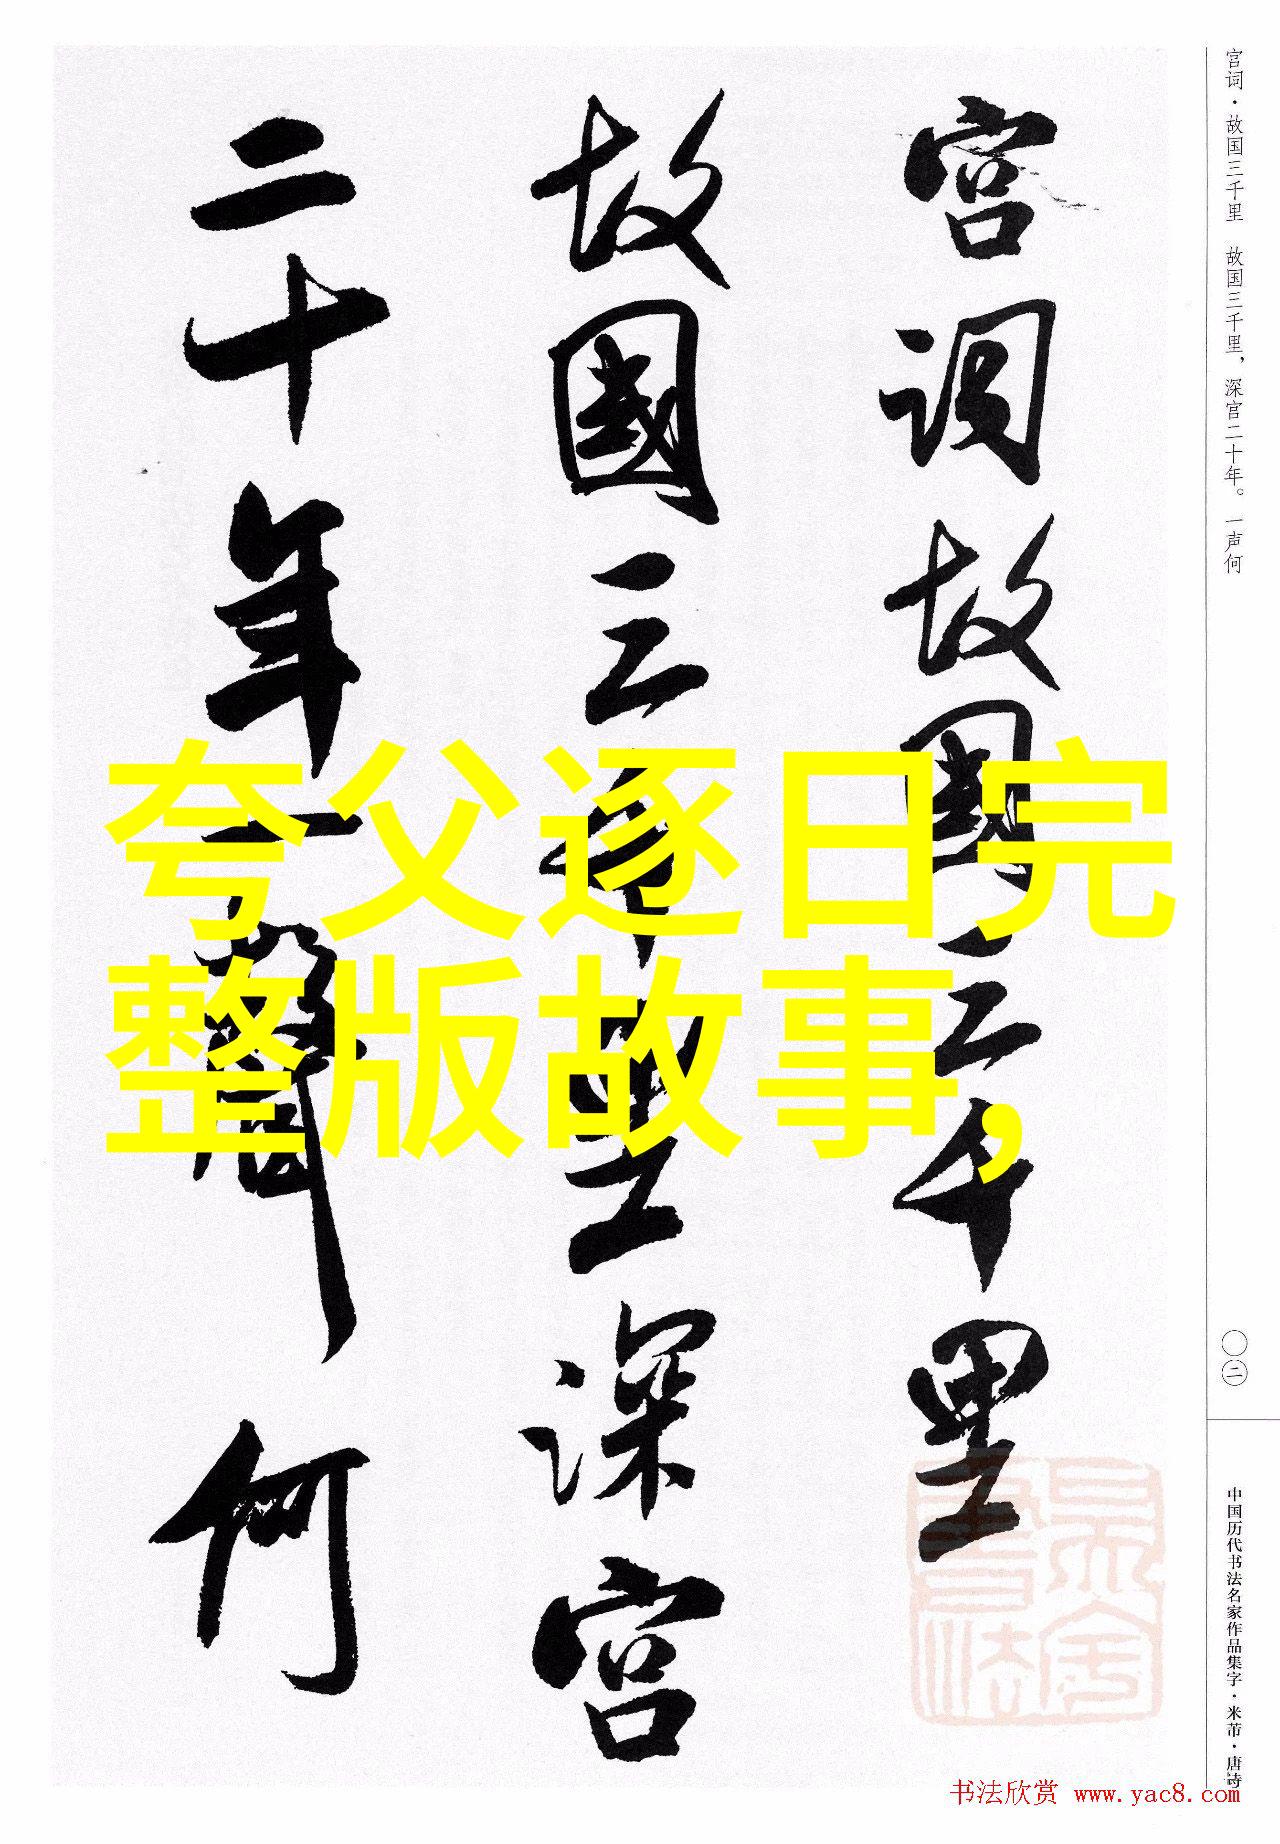 宫词故國三千里
故國三千里深宫
二十年一聲何
夸父逐日完
整版故事,
宫词·故国三千里 故国三千里，深宫二十年。一声何
〇二
中国历代书法名家作品集字·米芾·唐诗
书法欣赏 www.yac8.com